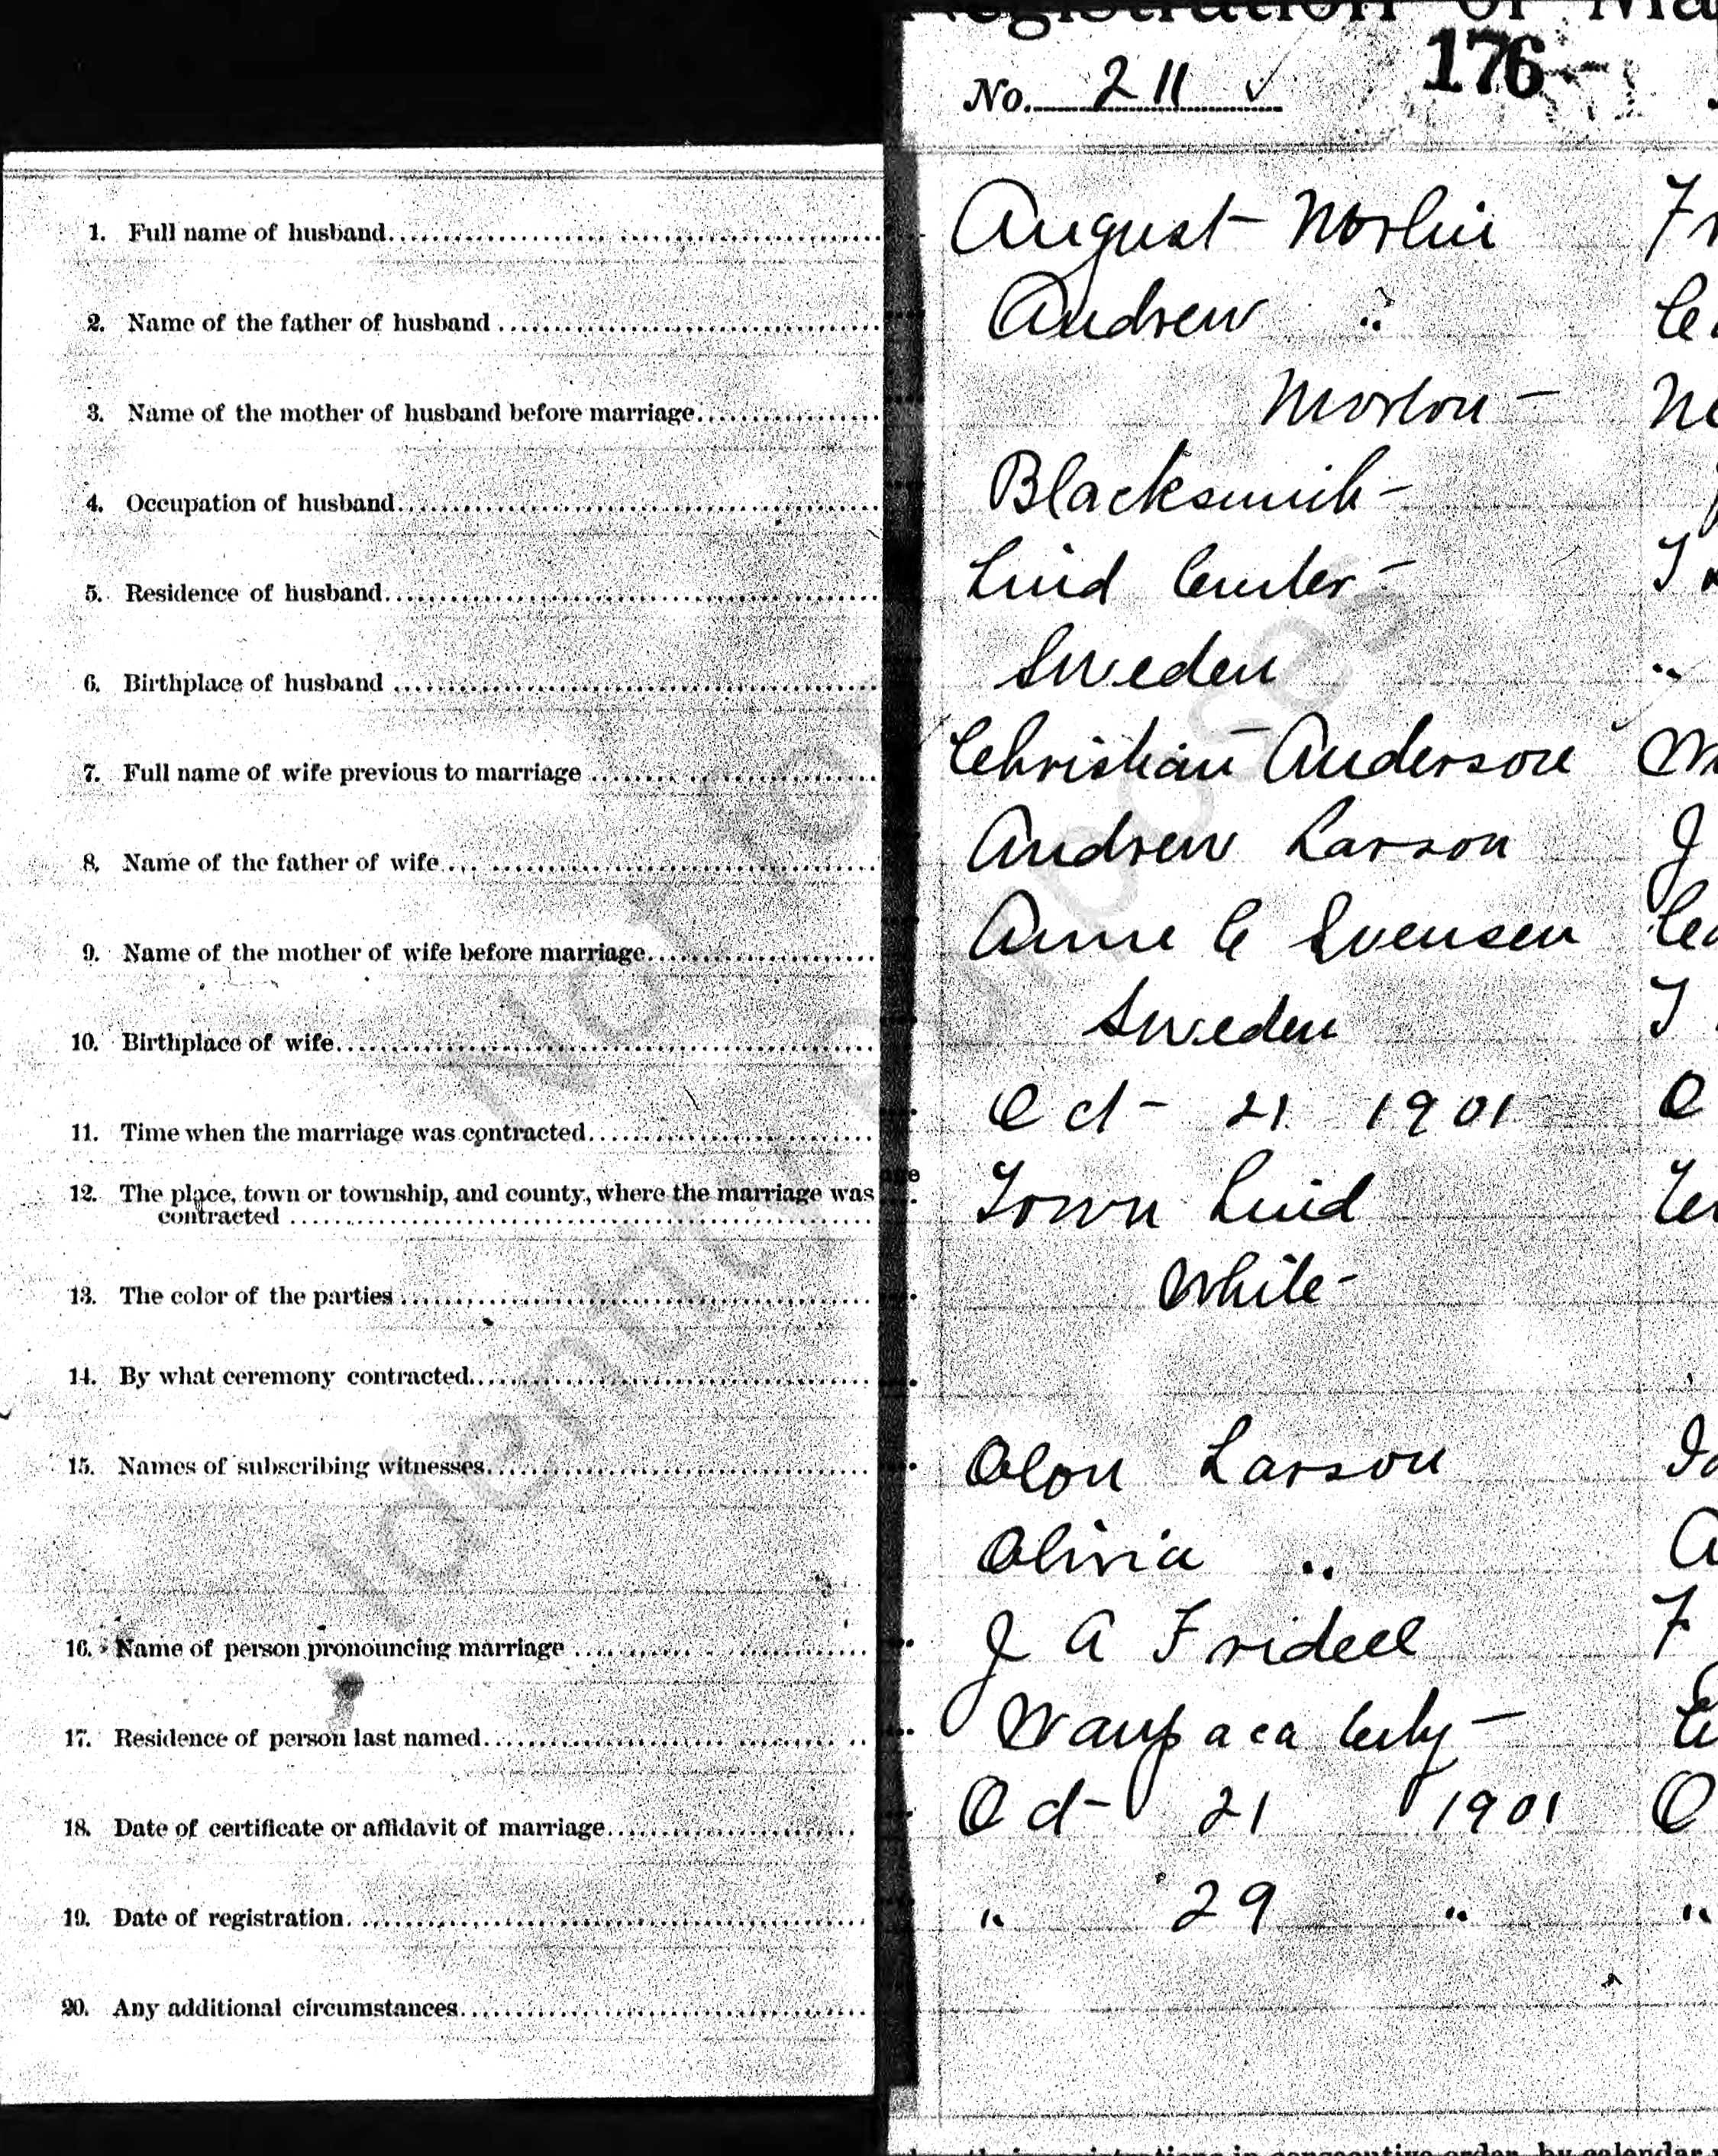 Registration of Ma
176
No. 211 ✓
1. Full name of husband August Norlin Fr
2. Name of the father of husband Andrew "
3. Name of the mother of husband before marriage Morlon - Ne
4. Occupation of husband Blacksmith -
5. Residence of husband Lind Center -
6. Birthplace of husband Sweden "
7. Full name of wife previous to marriage Christian Anderson
8. Name of the father of wife Andrew Larson J
9. Name of the mother of wife before marriage Anne C Svensen
10. Birthplace of wife Sweden
11. Time when the marriage was contracted Oct - 21 1901 O
12. The place, town or township, and county, where the marriage was
contracted Town Lind
13. The color of the parties White -
14. By what ceremony contracted
15. Names of subscribing witnesses Olou Larson
Olivia " A
16. Name of person pronouncing marriage J A Fridell F
17. Residence of person last named Waupaca City -
18. Date of certificate or affidavit of marriage Oct - 21 1901 O
19. Date of registration " 29 " "
20. Any additional circumstances
Not for
Identity Purposes